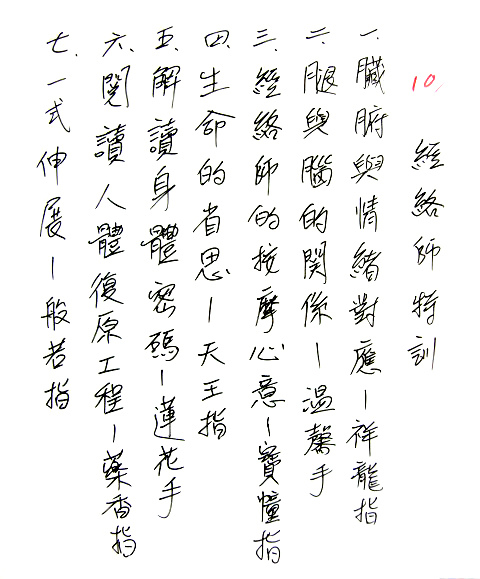 10、
經絡師特訓
一、臟腑與情緒對應－祥龍指
二、腿與腦的関係－溫馨手
三、經絡師的按摩心意－寶幢指
四、生命的省思－天王指
五、解讀身體密碼－蓮花手
六、閱讀人體復原工程－藥香指
七、一式伸展－般若指